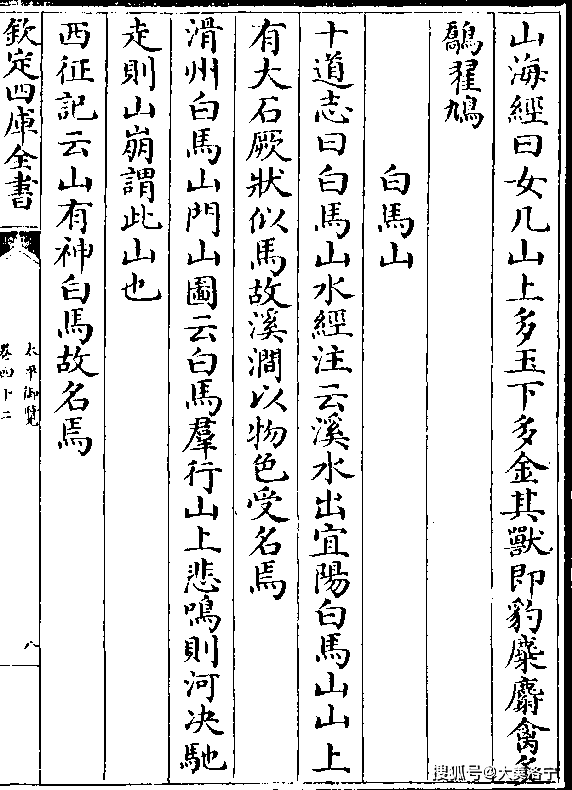 山海經曰女几山上多玉下多金其獸即豹麋麝禽多
鷮翟鳩
白馬山
十道志曰白馬山水經注云溪水出宜陽白馬山山上
有大石厥狀似馬故溪澗以物色受名焉
滑州白馬山門山圖云白馬羣行山上悲鳴則河決馳
走則山崩謂此山也
西征記云山有神白馬故名焉
欽定四庫全書
太平御覽
卷四十二
八
搜狐号@大美洛宁